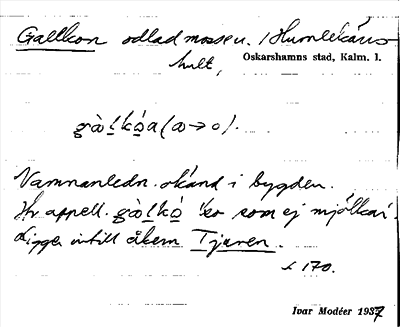 Gallkon odlad mosse u. Humlekärrs
hult,
Oskarshamns stad, Kalm. l.
gàlkóa (a→o).
Namnanledn. okänd i bygden.
Hr appell. gàlkó 'ko som ej mjölkar'.
Ligger intill åkern Tjuren.
s. 170.
Ivar Modéer 1937